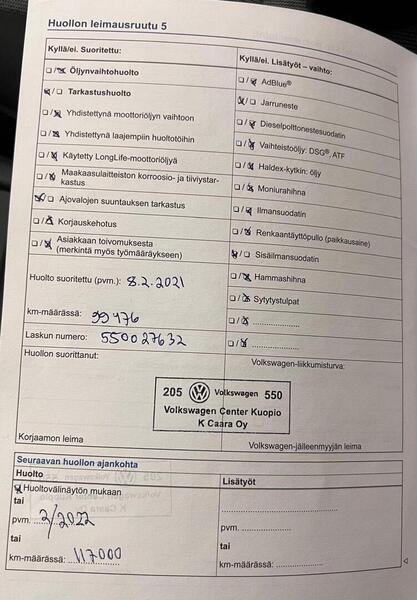 Huollon leimausruutu 5
Kyllä/ei. Suoritettu:
Öljynvaihtohuolto
Tarkastushuolto
Yhdistettynä moottoriöljyn vaihtoon
Yhdistettynä laajempiin huoltotöihin
Käytetty LongLife-moottoriöljyä
Maakaasulaitteiston korroosio- ja tiiviystar-
kastus
Ajovalojen suuntauksen tarkastus
Korjauskehotus
Asiakkaan toivomuksesta
(merkintä myös työmääräykseen)
Huolto suoritettu (pvm.): 8.2.2021
km-määrässä: 99476
Laskun numero: 550027632
Huollon suorittanut:
Kyllä/ei. Lisätyöt – vaihto:
AdBlue®
Jarruneste
Dieselpolttonestesuodatin
Vaihteistoöljy: DSG®, ATF
Haldex-kytkin: öljy
Moniurahihna
Ilmansuodatin
Renkaantäyttöpullo (paikkausaine)
Sisäilmansuodatin
Hammashihna
Sytytystulpat
Volkswagen-liikkumisturva:
205 Volkswagen 550
Volkswagen Center Kuopio
K Caara Oy
Korjaamon leima
Volkswagen-jälleenmyyjän leima
Seuraavan huollon ajankohta
Huolto
Huoltovälinäytön mukaan
tai
pvm. 2/2022
tai
km-määrässä: 117000
Lisätyöt
pvm.
tai
km-määrässä: